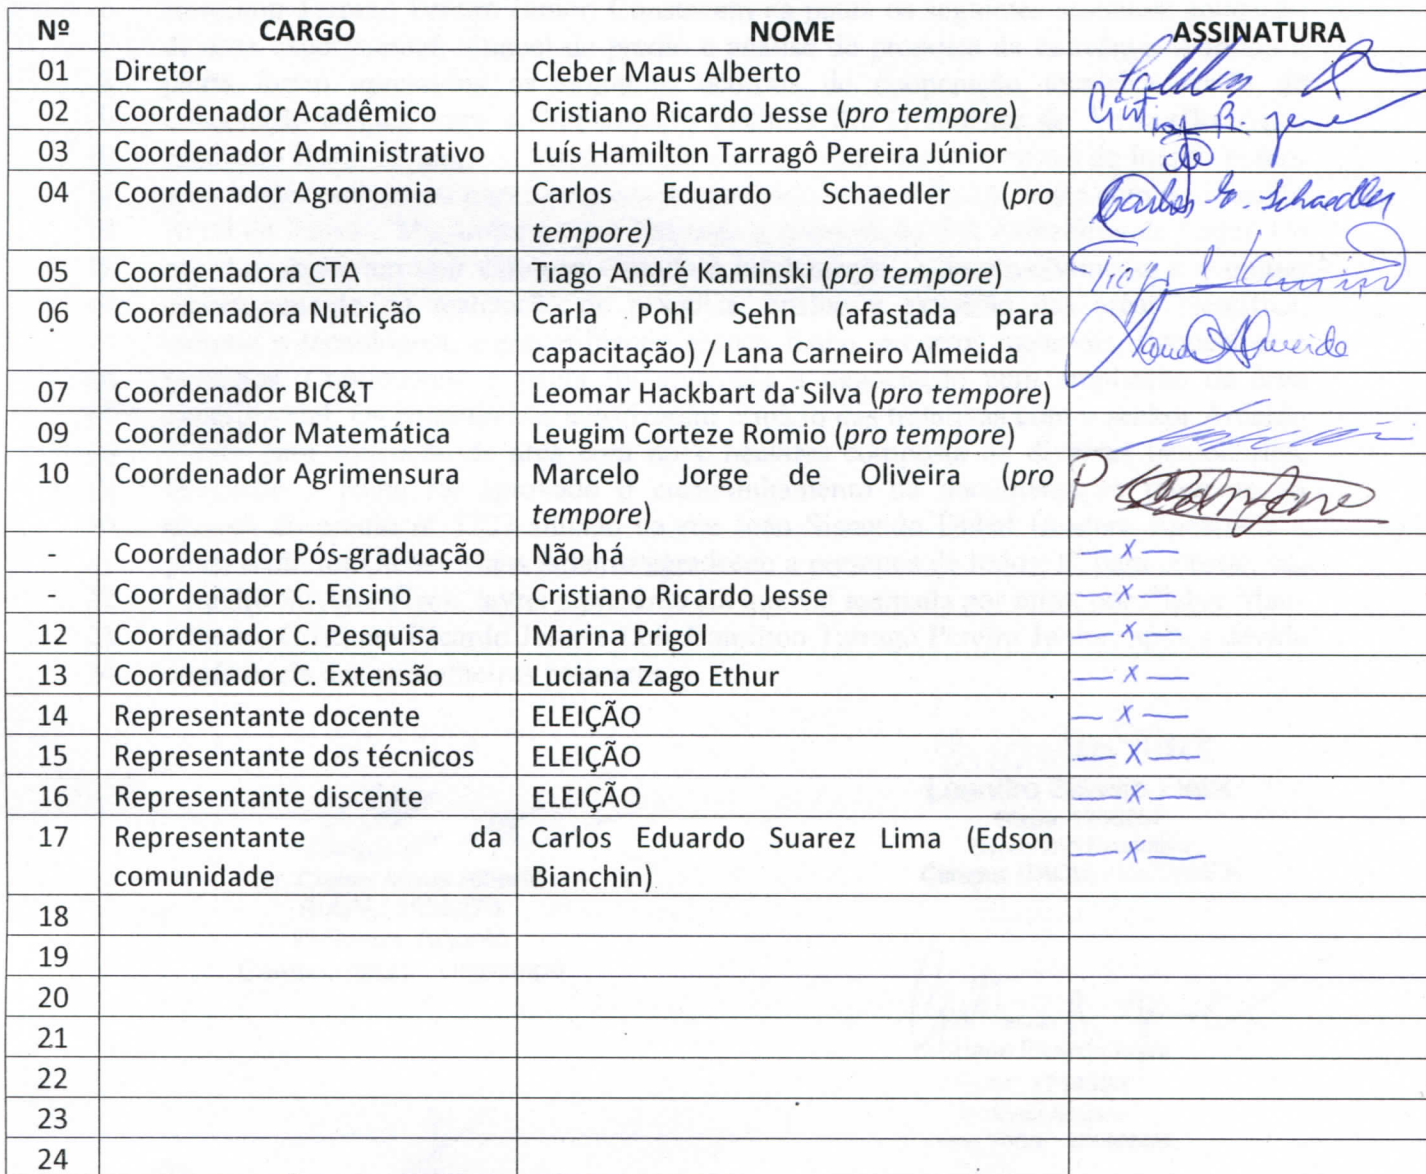 Nº CARGO NOME ASSINATURA
01 Diretor Cleber Maus Alberto
02 Coordenador Acadêmico Cristiano Ricardo Jesse (pro tempore)
03 Coordenador Administrativo Luís Hamilton Tarragô Pereira Júnior
04 Coordenador Agronomia Carlos Eduardo Schaedler (pro Carlos E. Schaedler
tempore)
05 Coordenador CTA Tiago André Kaminski (pro tempore)
06 Coordenadora Nutrição Carla Pohl Sehn (afastada para
capacitação) / Lana Carneiro Almeida
07 Coordenador BIC&T Leomar Hackbart da Silva (pro tempore)
09 Coordenador Matemática Leugim Corteze Romio (pro tempore)
10 Coordenador Agrimensura Marcelo Jorge de Oliveira (pro P
tempore)
- Coordenador Pós-graduação Não há — x —
- Coordenador C. Ensino Cristiano Ricardo Jesse — x —
12 Coordenador C. Pesquisa Marina Prigol — x —
13 Coordenador C. Extensão Luciana Zago Ethur — x —
14 Representante docente ELEIÇÃO — x —
15 Representante dos técnicos ELEIÇÃO — x —
16 Representante discente ELEIÇÃO — x —
17 Representante da Carlos Eduardo Suarez Lima (Edson — x —
comunidade Bianchin)
18
19
20
21
22
23
24